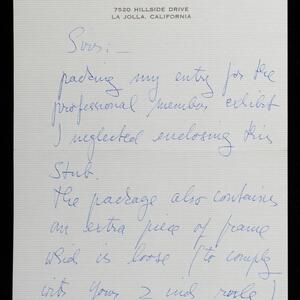 7520 HILLSIDE DRIVE
LA JOLLA, CALIFORNIA
Sirs: —
packing my entry for the
professional member exhibit
I neglected enclosing this
Stub.
The package also contains
an extra piece of frame
which is loose (to comply
with your 2 ind rule)